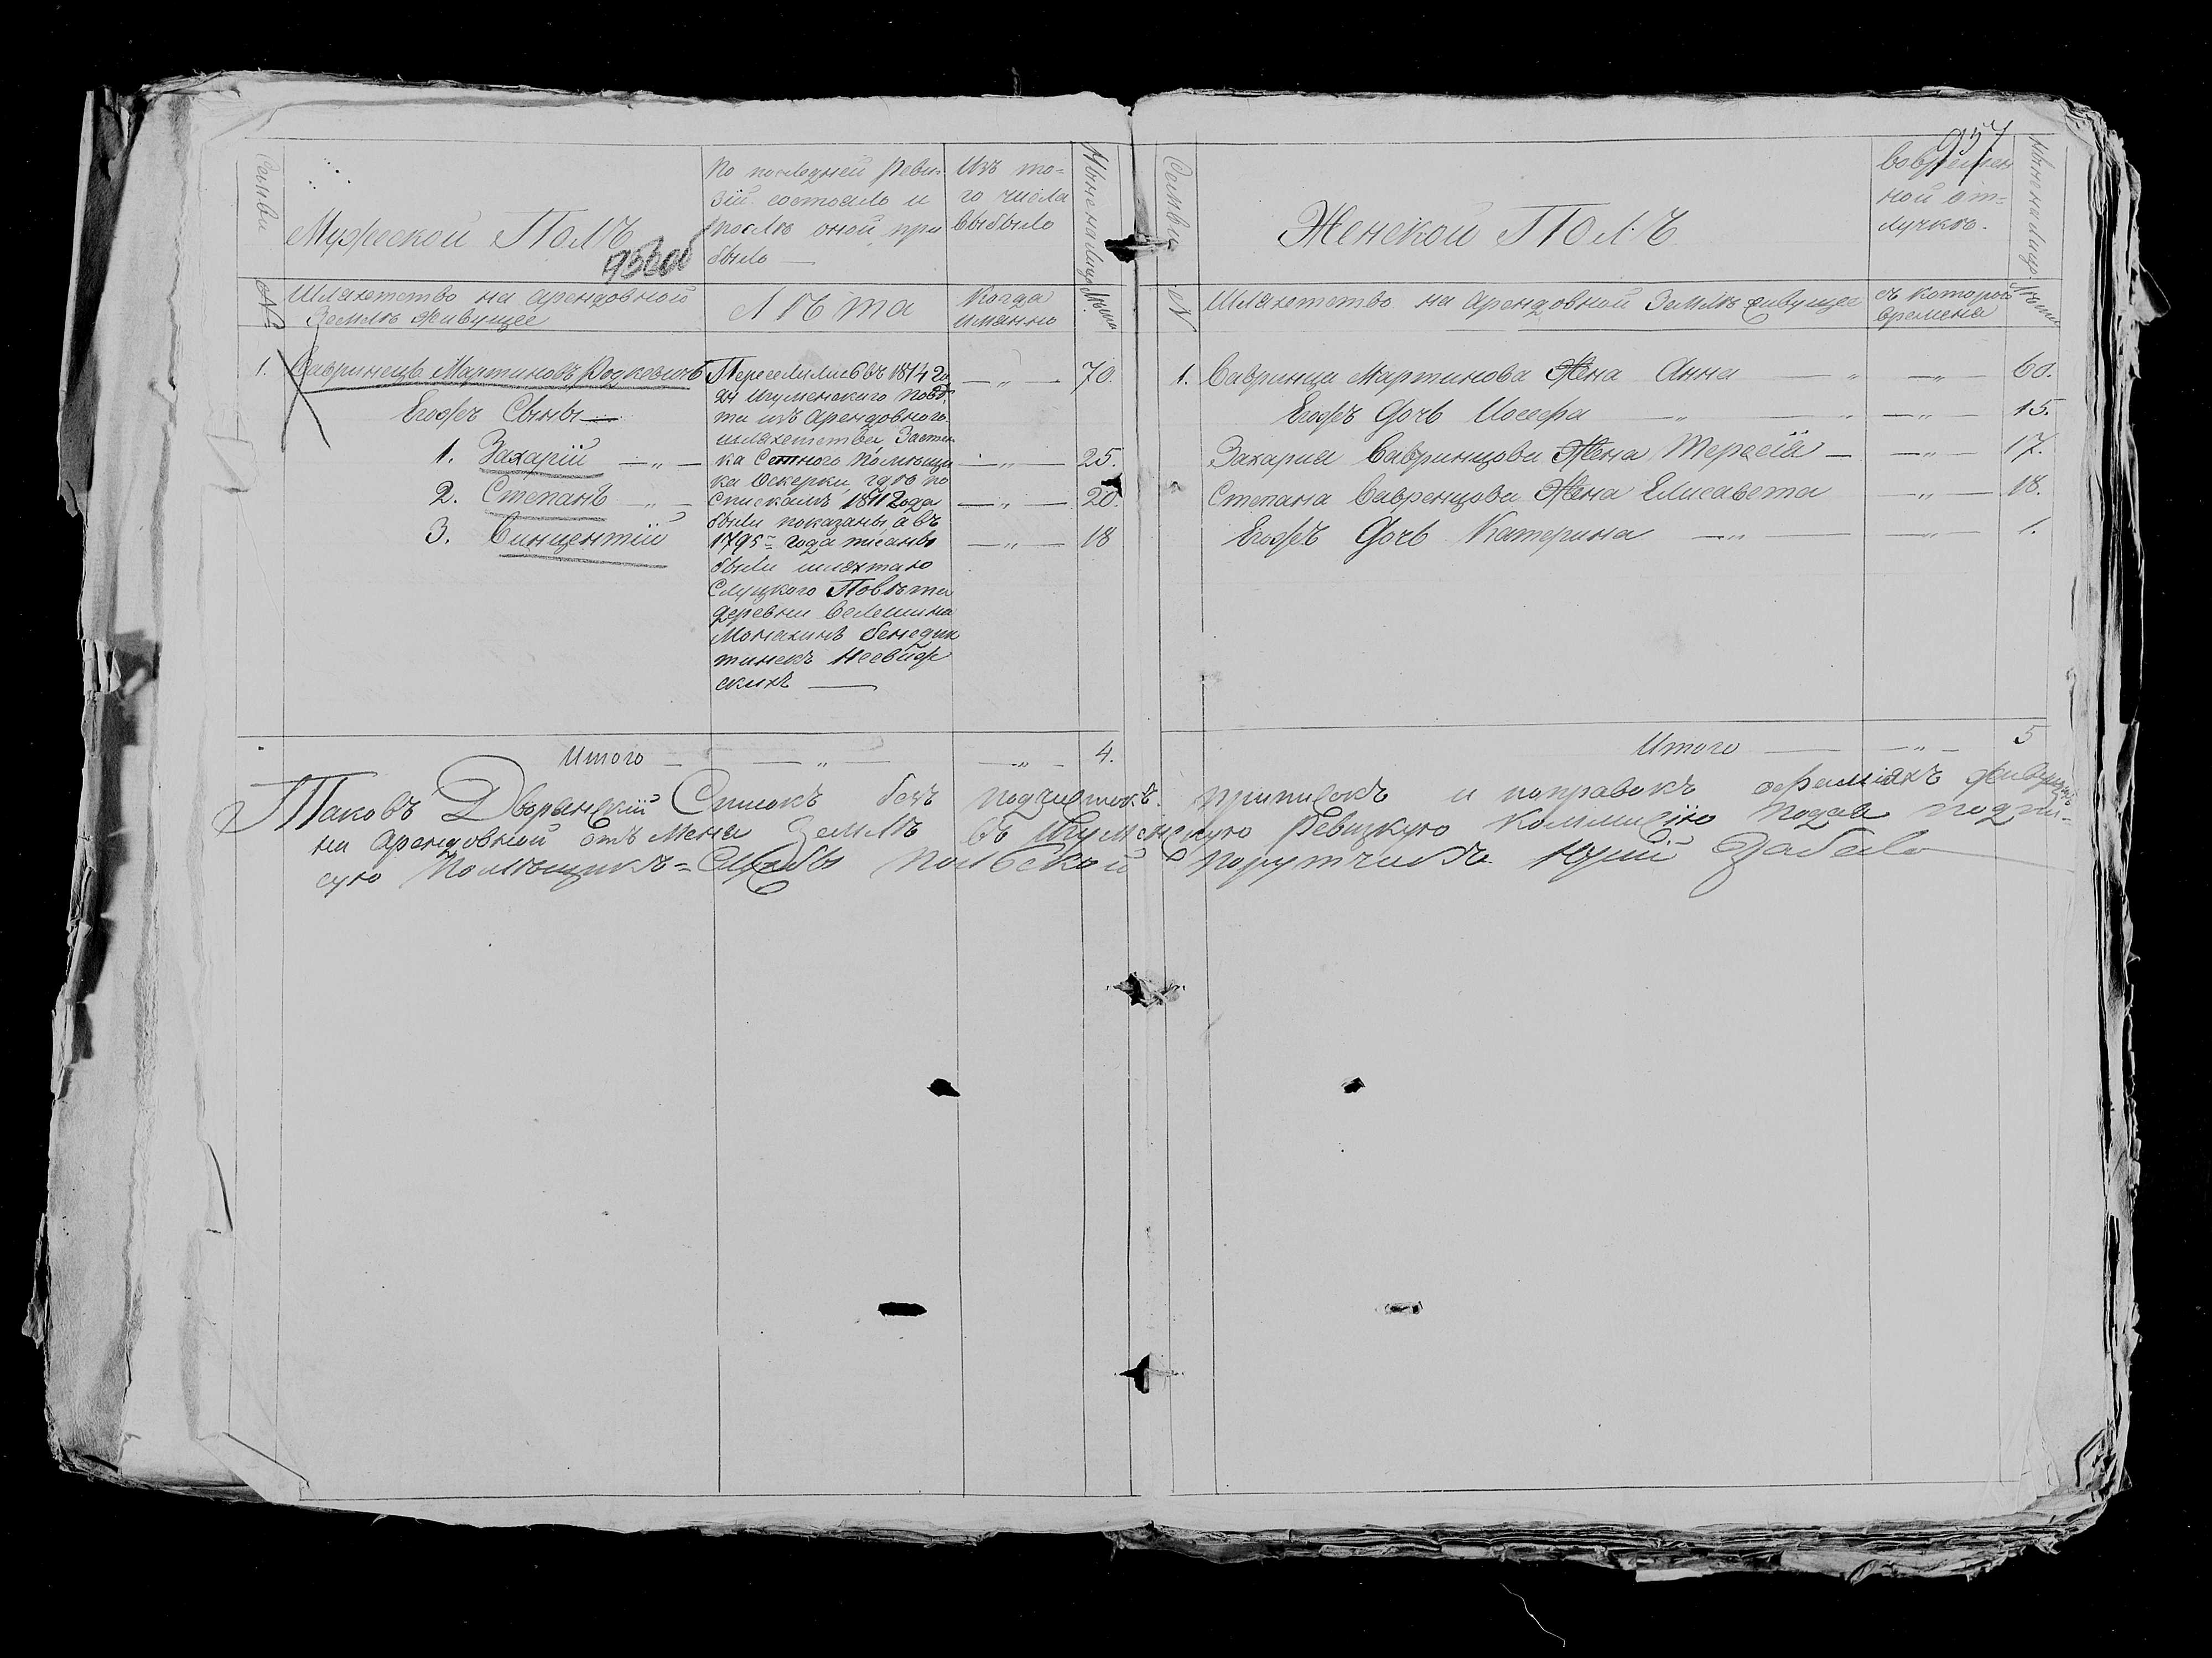 Семьи
Мужеской Полъ
956об
По последней Реви
зіи состояло и
после оной при
было —
Изъ то=
го числа
выбыло
Ныне на лицо
№
Шляхетство на арендовной
Земле живущее
Лѣта
когда
имянно
Лѣта
1. Вавринецъ Мартиновъ Родкевичъ
70.
Егожъ Сыны —
1. Захарій — „ —
25.
2. Степанъ — „ —
20.
3. Винцентій
18
Переселились въ 1814 го
ду Игуменского Пове
та изъ Арендовного
шляхетства Застен
ка Сетного помещи
ка Оскерки, где по
Спискамъ 1811 года
были показаны а въ
1795м года писаны
были шляхтаю
Слуцкого Повѣта
деревни
Монахинь бенедик
тинекъ Несвиж
скихъ —
Итого — „ — — „ — 4.
957
Семьи
Женской Полъ
во времен
ной от=
лучке.
Ныне на лицо
№
Шляхетство на Арендовной Земле живущее
съ которого
времени
Лѣта
1. Вавринца Мартинова Жена Анна — „ — „ — 60.
Егожъ Дочь Иосефа — „ — „ — 15.
Захария Вавринцова Жена Тересіа — — „ — 17.
Степана Вавренцова Жена Елисавета — „ — 18.
Егожъ Дочь Катерина — „ — — „ — 1.
Итого — — „ — 5
Таковъ Дворянскій Списокъ безъ подчистокъ приписокъ и поправокъ о фамиліяхъ живущихъ
на Арендовной отъ Мена Земле въ Игуменскую Ревизкую Коммисію подая подпи-
сую Помещикъ = Службы Польской Порутчикъ Юрій Забело